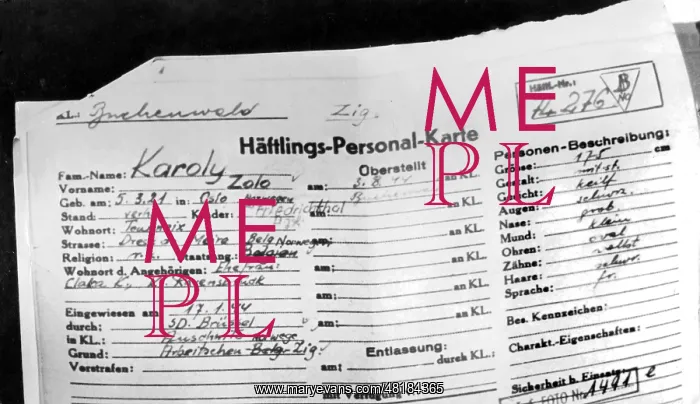 KL.: Buchenwald Zig.
Häftl.-Nr.:
276
B
NO
Häftlings-Personal-Karte
Fam.-Name: Karoly
Vorname: Zolo
Geb. am: 5.3.21 in: Oslo
Stand: verh. Kinder:
Wohnort:
Strasse:
Religion: Staatsang.: Belgien Norweger
Wohnort d. Angehörigen: Ehefrau:
Clara K., KL. Ravensbrück
Eingewiesen am: 17.1.44
durch: SD. Brüssel
in KL.: Auschwitz
Grund: Arbeitscheu-Belg. Zig.
Vorstrafen:
Überstellt
am: 3.8.44 an KL.
am: an KL.
am: an KL.
am: an KL.
am: an KL.
am: an KL.
Entlassung:
am: durch KL.:
mit Verfügung
Personen-Beschreibung:
Grösse: 175 cm
Gestalt:
Gesicht:
Augen: schwarz.
Nase: grob
Mund: klein
Ohren: oval
Zähne:
Haare: schwr.
Sprache: fr.
Bes. Kennzeichen:
Charakt.-Eigenschaften:
Sicherheit b. Einsatz:
FOTO No 1491 e
ME
PL
ME
PL
www.maryevans.com/48184365